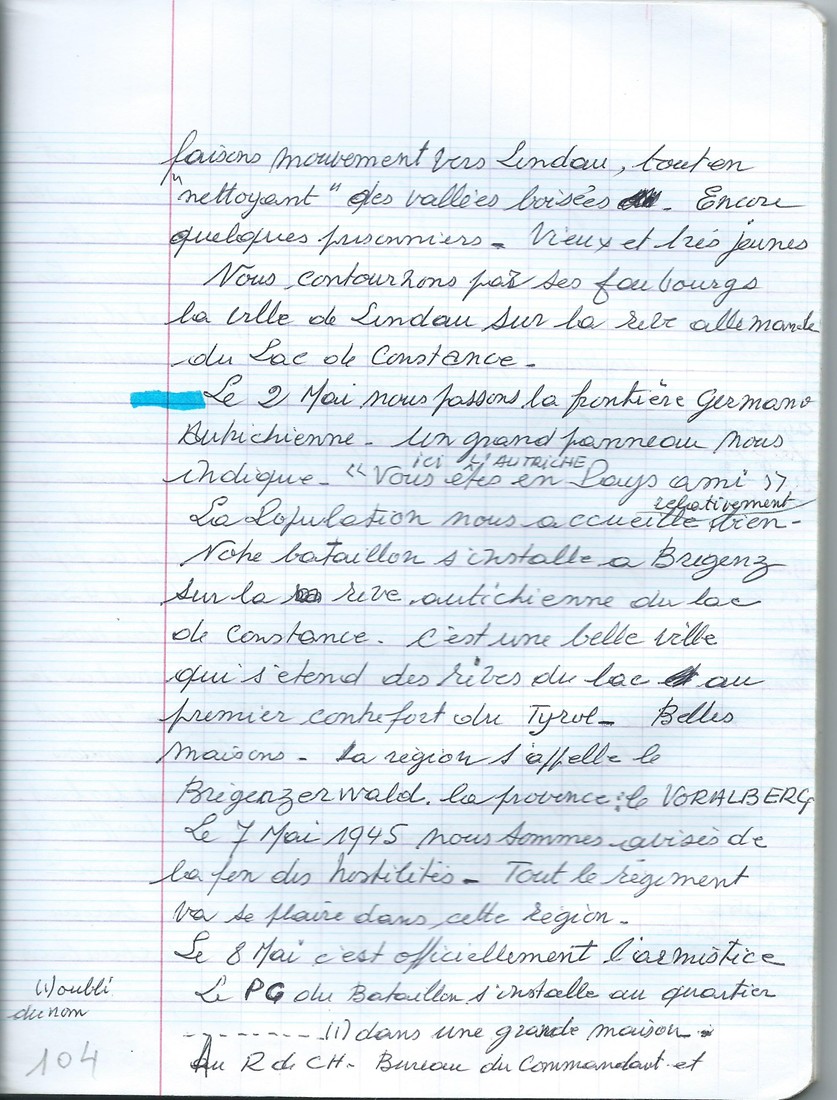 faisons mouvement vers Lindau, tout en
"nettoyant" des vallées boisées. Encore
quelques prisonniers - Vieux et très jeunes
Nous contournons par ses faubourgs
la ville de Lindau sur la rive allemande
du Lac de Constance -
Le 2 Mai nous passons la frontière Germano
Autrichienne - un grand panneau nous
ici L'AUTRICHE
indique - "Vous êtes en Pays ami"
relativement
La Population nous accueille bien -
Notre bataillon s'installe a Brégenz
sur la rive autrichienne du lac
de Constance. C'est une belle ville
qui s'étend des rives du lac au
premier contrefort du Tyrol - Belles
maisons - La région s'appelle le
Brégenzerwald. la province : le VORALBERG
Le 7 Mai 1945 nous sommes avisés de
la fin des hostilités - Tout le régiment
va se plaire dans cette région -
Le 8 Mai c'est officiellement l'armistice
Le PC du Bataillon s'installe au quartier
(1) oubli
du nom
---------- (1) dans une grande maison -
Au R de CH - Bureau du Commandant et
104